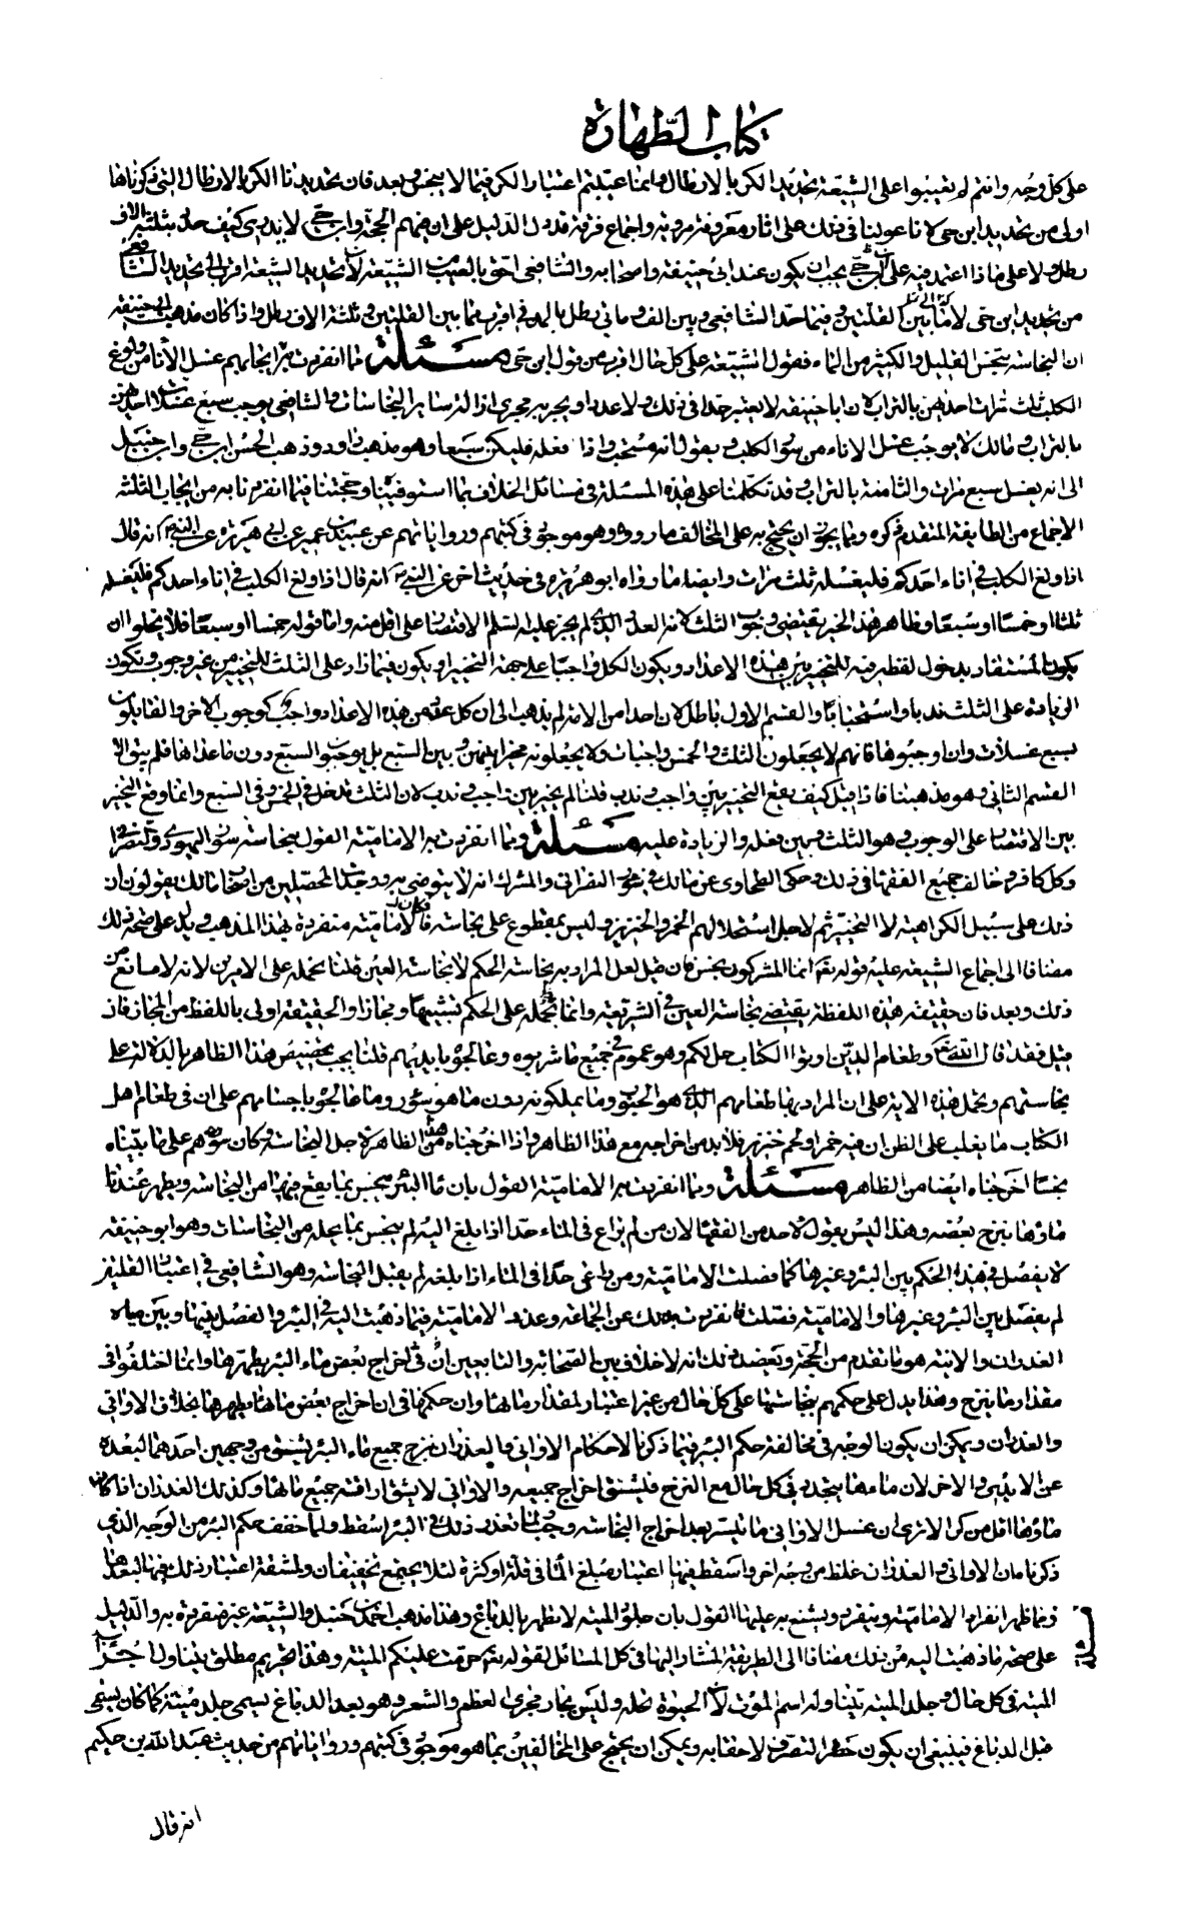 كتاب الطهارة
على كل وجه وانتم لم تعيبوا على الشيعة تحديد الكر بالارطال وانما عبتم اعتبار الكر فيما لا ينجس وبعد فان تحديدنا الكر بالارطال التي ذكرناها
اولى من تحديد ابن حى لانا عولنا في ذلك على اثار معروفة مروية واجماع فرقة قد دل الدليل على ان فيهم الحجة وابن حى لا ندرى كيف حد بثلثة الاف
رطل ولا على ماذا اعتمد فيه على ان حى يجب ان يكون عند ابى حنيفة واصحابه والشافعى احق بالعيب من الشيعة لان تحديد الشيعة اقرب الى تحديد الشافعى
من تحديد ابن حى لان ما بين القلتين وفيما حد الشافعى وبين الف ومائتى رطل بالمدنى اقرب مما بين القلتين وثلثة الاف رطل واذا كان مذهب ابى حنيفة
ان النجاسة تنجس القليل والكثير من الماء فقول الشيعة على كل حال اقرب من قول ابن حى مسئلة مما انفردت به ايجابهم غسل الاناء من ولوغ
الكلب ثلث مرات احداهن بالتراب لان ابا حنيفة لا يعتبر حدا في ذلك ولا عددا ويجريه مجرى ازالة ساير النجاسات والشافعى يوجب سبع غسلات احداهن
بالتراب ومالك لا يوجب غسل الاناء من سؤر الكلب ويقول انه مستحب واذا فعله فليكن سبعا وهو مذهب داود وذهب الحسن ابن حى وابن حنبل
الى انه يغسل سبع مرات والثامنة بالتراب وقد تكلمنا على هذه المسئلة في مسائل الخلاف بما استوفيناه وحجتنا فيما انفردنا به من ايجاب الثلثة
الاجماع من الطايفة المتقدم ذكره ومما يجوز ان يحتج به على المخالف ما رووه وهو موجود في كتبهم ورواياتهم عن عبيد بن عمير عن ابى هريرة عن النبى انه قال
اذا ولغ الكلب في اناء احدكم فليغسله ثلث مرات وايضا ما رواه ابو هريرة في حديث اخر عن النبى انه قال اذا ولغ الكلب في اناء احدكم فليغسله
ثلثا او خمسا او سبعا وظاهر هذا الخبر يقتضى وجوب الثلث لانه العدد الذى لم يجز عليه السلم الاقتصار على اقل منه واما قوله خمسا او سبعا فلا يخلو ان
يكون المستفاد بدخول لفظه فيه للتخيير بين هذه الاعداد ويكون الكل واجبا على جهة التخيير او يكون فيما زاد على الثلث للتخيير من غير وجوب وتكون
الزيادة على الثلث ندبا واستحبابا والقسم الاول باطل لان احدا من الامة لم يذهب الى ان كل عدد من هذه الاعداد واجب كوجوب الاخر والقايلون
بسبع غسلات وان اوجبوها فانهم لا يجعلون الثلث والخمس واجبات ولا يجعلونه مخيرا بينهن وبين السبع بل يوجبون السبع دون ما عداها فلم يبق الا
القسم الثانى وهو مذهبنا فاذا قيل كيف يقع التخيير بين واجب وندب قلنا لم يخير بين واجب وندب لان الثلث تدخل في الخمس وفى السبع وانما وقع التخيير
بين الاقتصار على الوجوب وهو الثلث وبين فعله والزيادة عليه مسئلة ومما انفردت به الامامية القول بنجاسة سؤر اليهودى والنصرانى
وكل كافر وخالف جميع الفقهاء في ذلك وحكى الطحاوى عن مالك في سؤر النصرانى والمشرك انه لا يتوضى به ووجدت المحصلين من اصحاب مالك يقولون ان
ذلك على سبيل الكراهية لا التحريم لاجل استحلالهم الخمر والخنزير وليس بمقطوع على نجاسته فكان الامامية منفردة بهذا المذهب ويدل على صحة ذلك
مضافا الى اجماع الشيعة عليه قوله تعم انما المشركون نجس فان قيل لعل المراد به نجاسة الحكم لا نجاسة العين قلنا نحمله على الامرين لانه لا مانع من
ذلك وبعد فان حقيقة هذه اللفظة يقتضى نجاسة العين في الشريعة وانما تحمله على الحكم تشبيها ومجازا والحقيقة اولى باللفظ من المجاز فان
قيل فقد قال الله تعالى وطعام الذين اوتوا الكتاب حل لكم وهو عموم في جميع ما شربوه وعالجوه بايديهم قلنا يجب تخصيص هذا الظاهر بالدلالة على
نجاستهم ونحمل هذه الاية على ان المراد بها طعامهم الذى هو الحبوب وما يملكونه دون ما هو سؤر وما عالجوه باجسامهم على ان في طعام اهل
الكتاب ما يغلب على الظن ان فيه خمرا او لحم خنزير فلا بد من اخراجه مع هذا الظاهر واذا اخرجناه من هذا الظاهر لاجل النجاسة وكان سؤرهم على ما بيناه
نجسا اخرجناه ايضا من الظاهر مسئلة ومما انفردت به الامامية القول بان ماء البئر ينجس بما يقع فيها من النجاسة ويطهر عندنا
ماؤها بنزح بعضه وهذا ليس بقول لاحد من الفقهاء لان من لم يراع في الماء حدا اذا بلغ اليه لم ينجس بما يحله من النجاسات وهو ابو حنيفة
لا يفصل في هذا الحكم بين البئر وغيرها كما فصلت الامامية ومن راعى حدا في الماء اذا بلغه لم يقبل النجاسة وهو الشافعى في اعتبار القلتين
لم يفصل بين البئر وغيرها والامامية فصلت فانفردت بذلك عن الجماعة وعذر الامامية فيما ذهبت اليه في البئر والفصل بينها وبين مياه
الغدران والانية هو ما تقدم من الحجة ويعضد ذلك انه لا خلاف بين الصحابة والتابعين ان في اخراج بعض ماء البئر يطهرها وانما اختلفوا في
مقدار ما ينزح وهذا يدل على حكمهم بنجاستها على كل حال من غير اعتبار لمقدار مائها وان حكمها في ان اخراج بعض مائها يطهرها بخلاف الاوانى
والغدران ويمكن ان يكون الوجه في مخالفة حكم البئر فيما ذكرنا لاحكام الاوانى والغدران ان نزح جميع ماء البئر يشق من وجهين احدهما لبعده
عن الايدى والاخر لان ماءها يتجدد في كل حال مع النزح فليشق اخراج جميعه والاوانى لا يشق اراقة جميع مائها وكذلك الغدران اذا كان
ماؤها اقل من كر الا ترى ان غسل الاوانى ما تيسر بعد اخراج النجاسة وجب ولما تعذر ذلك في البئر اسقط ولما خفف حكم البئر من الوجه الذى
ذكرناه فان الاوانى والغدران غلظ من وجه اخر واسقط فيها اعتبار مبلغ الماء في قلة او كثرة لئلا يجتمع تخفيفان ولمشقة اعتبار ذلك فيها لبعدها
ومما ظهر انفراد الامامية وينفرد ويشنع به عليها القول بان جلود الميتة لا تطهر بالدباغ وهذا مذهب احمد بن حنبل والشيعة غير منفردة به والدليل
على صحة ما ذهبت اليه من ذلك مضافا الى الطريقة المشار اليها في كل المسائل لقوله تعم حرمت عليكم الميتة وهذا تحريم مطلق يتناول اجزاء
الميتة في كل حال وجلد الميتة يتناوله اسم الموت لان الحيوة تحله وليس بجار مجرى العظم والشعر وهو بعد الدباغ يسمى جلد ميتة كما كان يسمى
قبل الدباغ فينبغى ان يكون حظر التصرف لاحقا به ويمكن ان يحتج على المخالفين بما هو موجود في كتبهم ورواياتهم من حديث عبد الله بن حكيم
انه قال